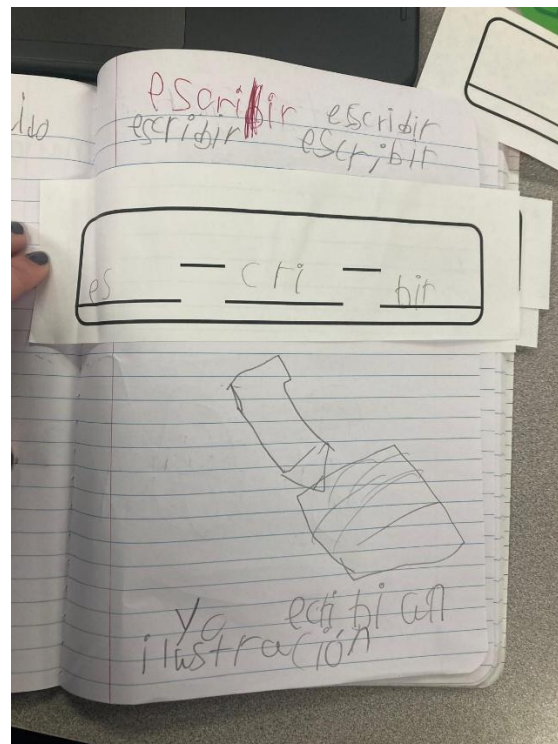 ido
escribir escribir
escribir escribir
es - cri - bir
Yo ecribi un
ilustración